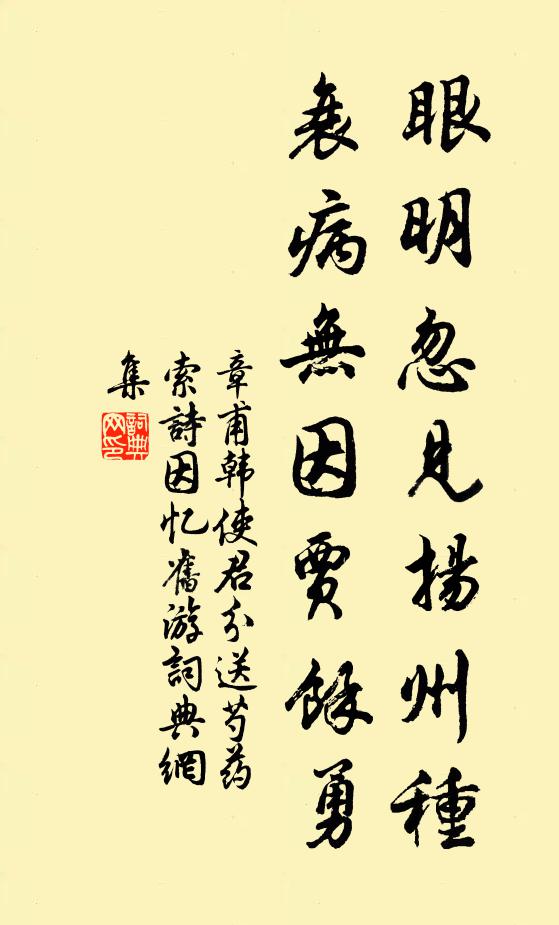 眼明忽見揚州種
衰病無因賈餘勇
章甫韓使君分送芍药
索詩因忆舊游詞典網
集
詞典
网印